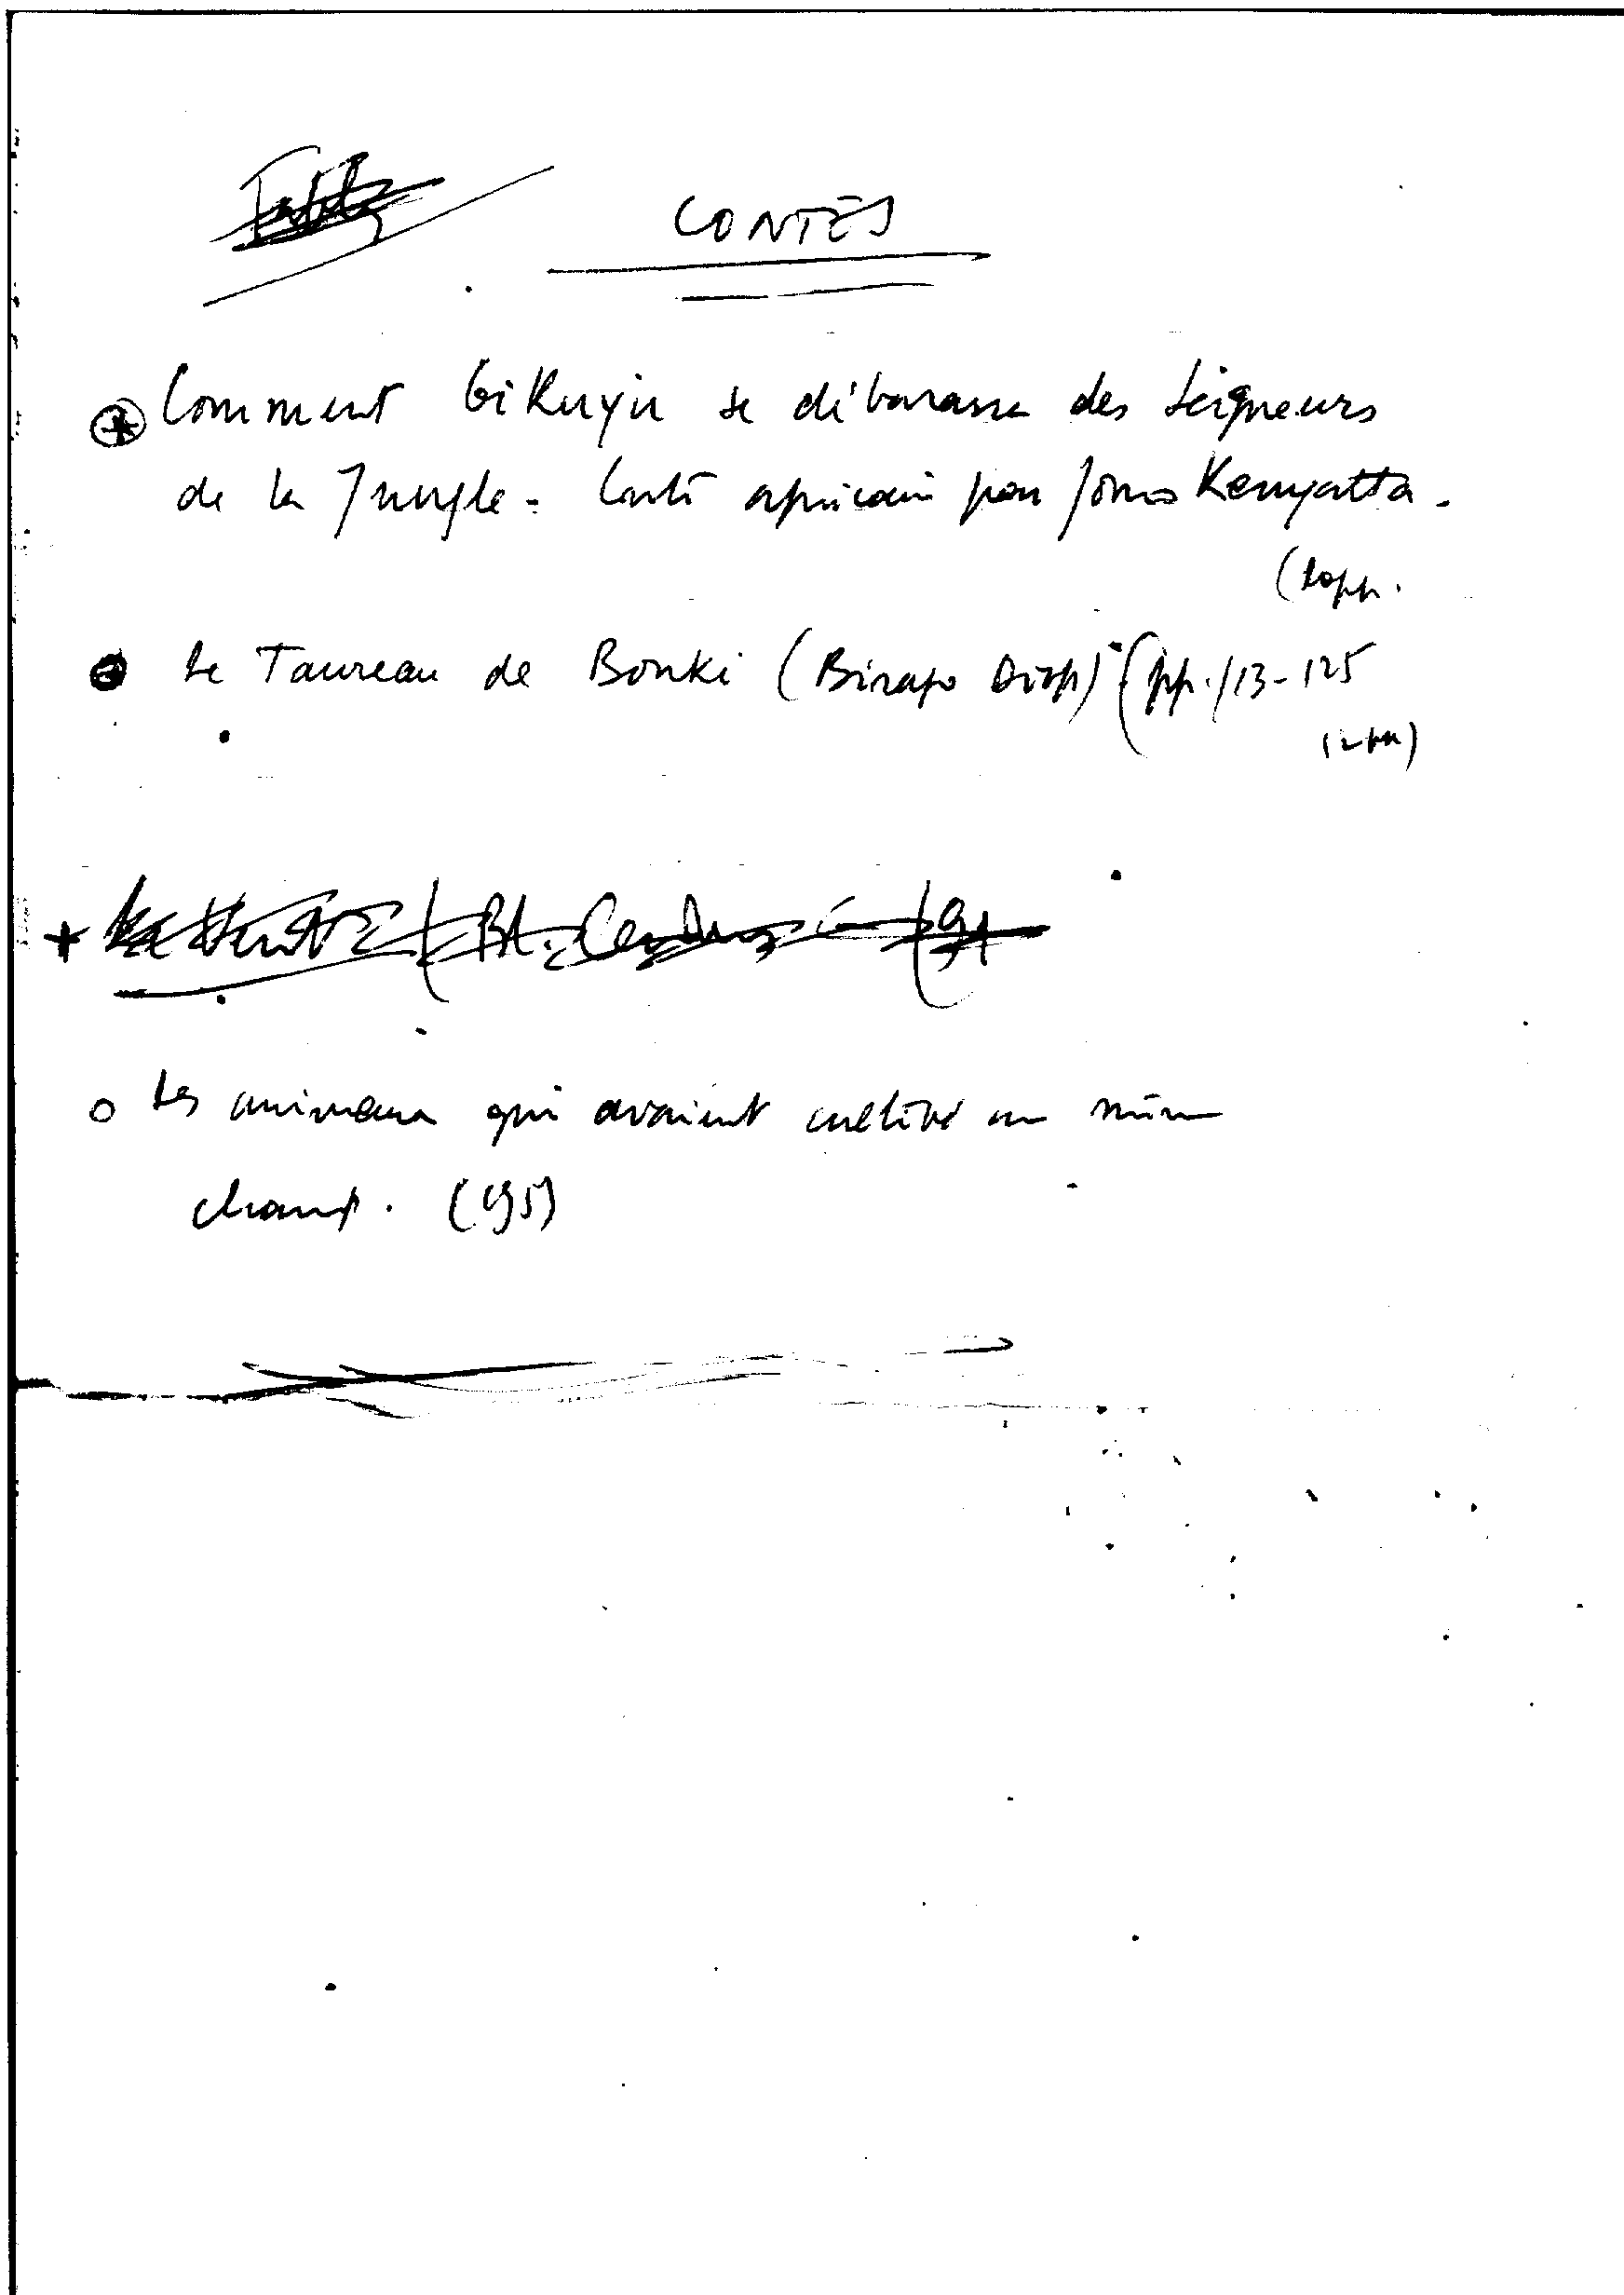 CONTES
Comment Gikuyu se débarassa des Seigneurs
de la Jungle - Conte africain par Jomo Kenyatta.
Le Taureau de Bouki (Birago Diop) (pp. 113-125
Les animaux qui avaient cultivé un même
champ. (195)